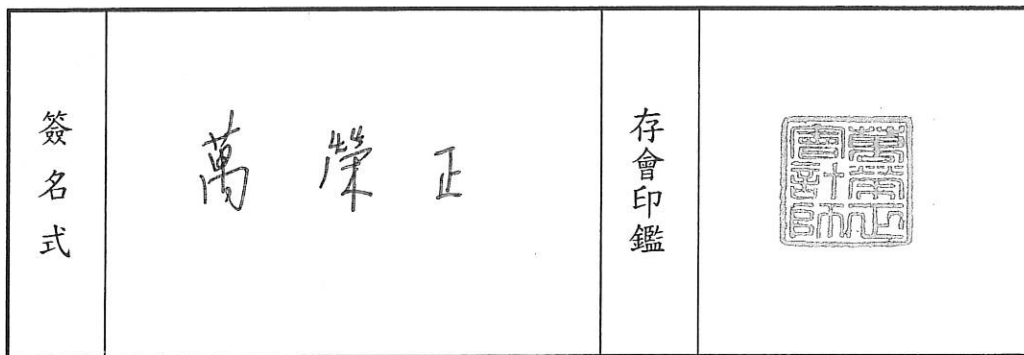 簽名式
萬榮正
存會印鑑
萬榮正
會計師